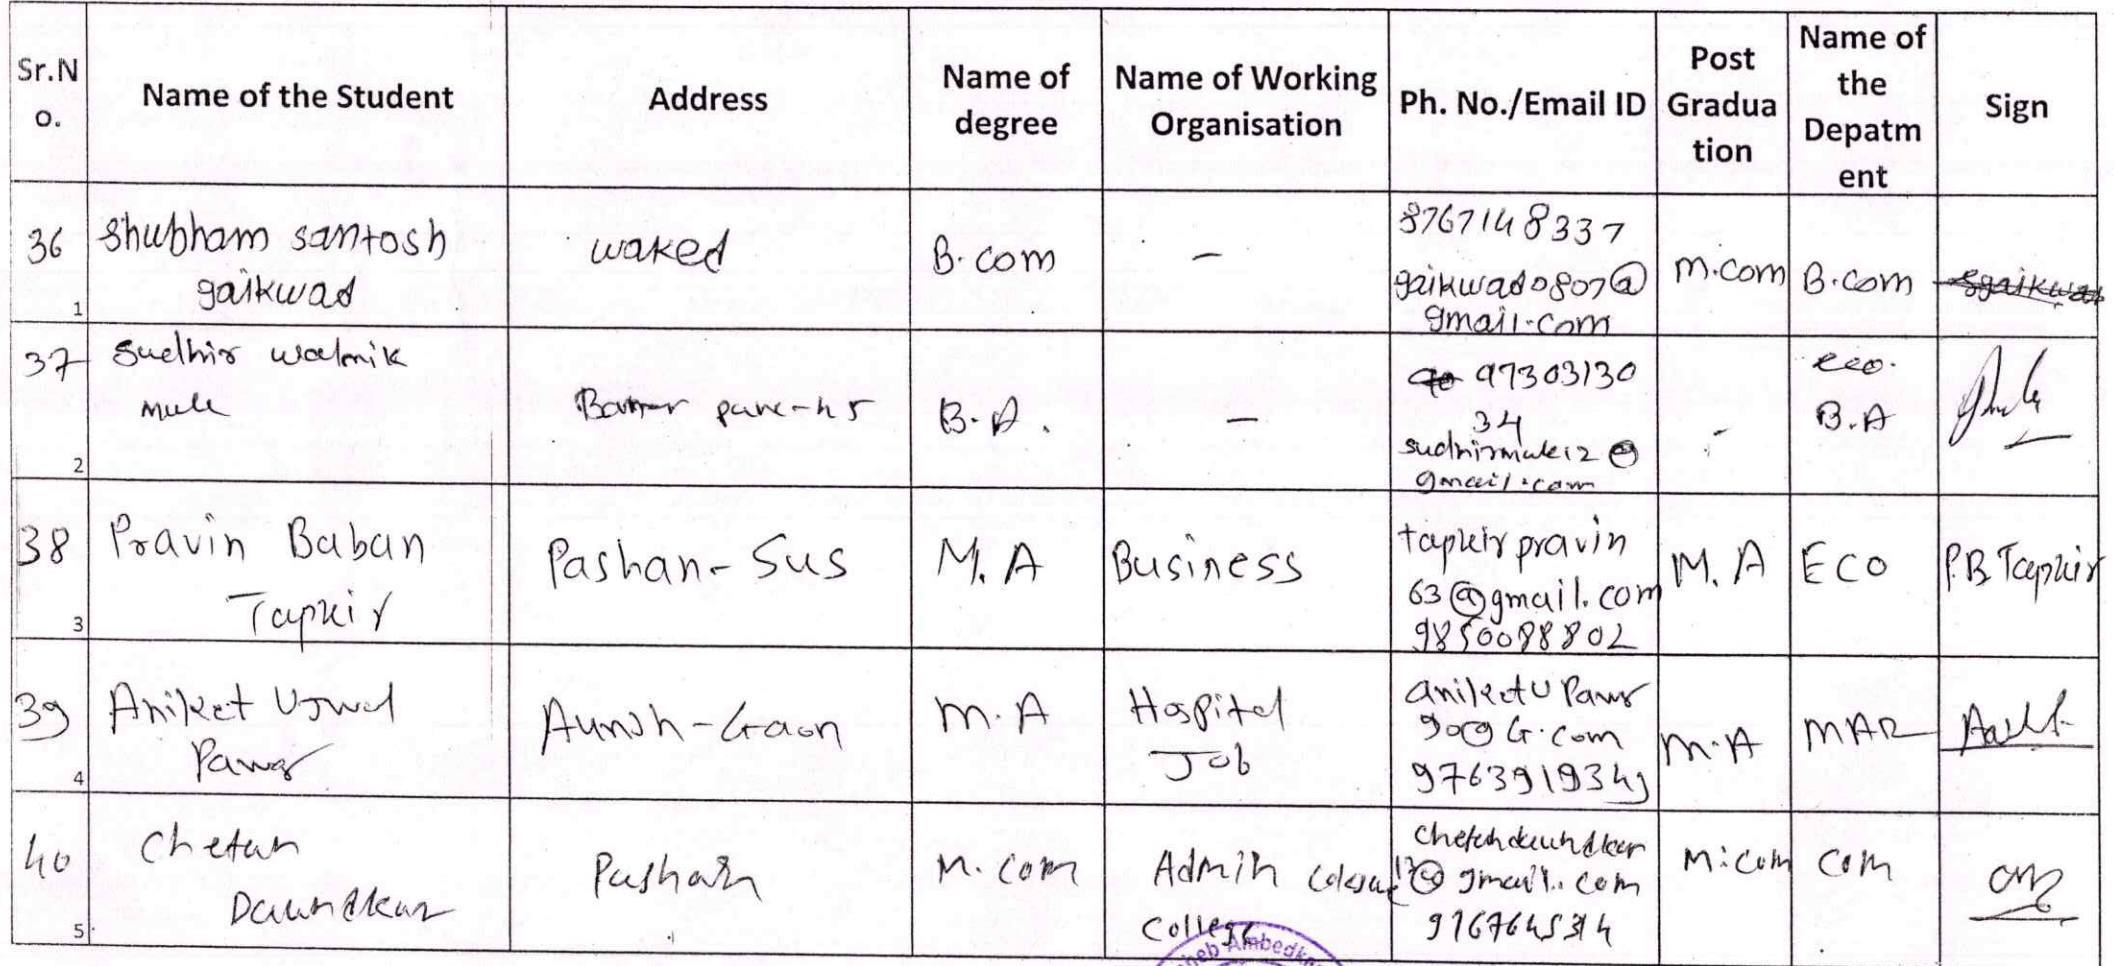 Sr.N
o.
Name of the Student
Address
Name of
degree
Name of Working
Organisation
Ph. No./Email ID
Post
Gradua
tion
Name of
the
Depatm
ent
Sign
36
1
Shubham santosh
gaikwad
waked
B.com
-
8767148337
gaikwad0807@
gmail.com
M.com
B.com
sgaikwad
37
2
Sudhir walmik
mule
Baner
B.A.
-
97303130
34
sudhirmule12@
gmail.com
-
eco.
B.A
38
3
Pravin Baban
Tapkir
Pashan-Sus
M.A
Business
tapkir pravin
63@gmail.com
9850088802
M.A
ECO
P.B Tapkir
39
4
Aniket Ujwal
Pawar
Aundh-Gaon
M.A
Hospital
Job
aniket U Pawar
909 G.com
9763919349
M.A
MAR
40
5
Chetan
Daundkar
Pashan
M.com
Admin
College
chetandaundkar
17@gmail.com
M.com
com
Ambedkar